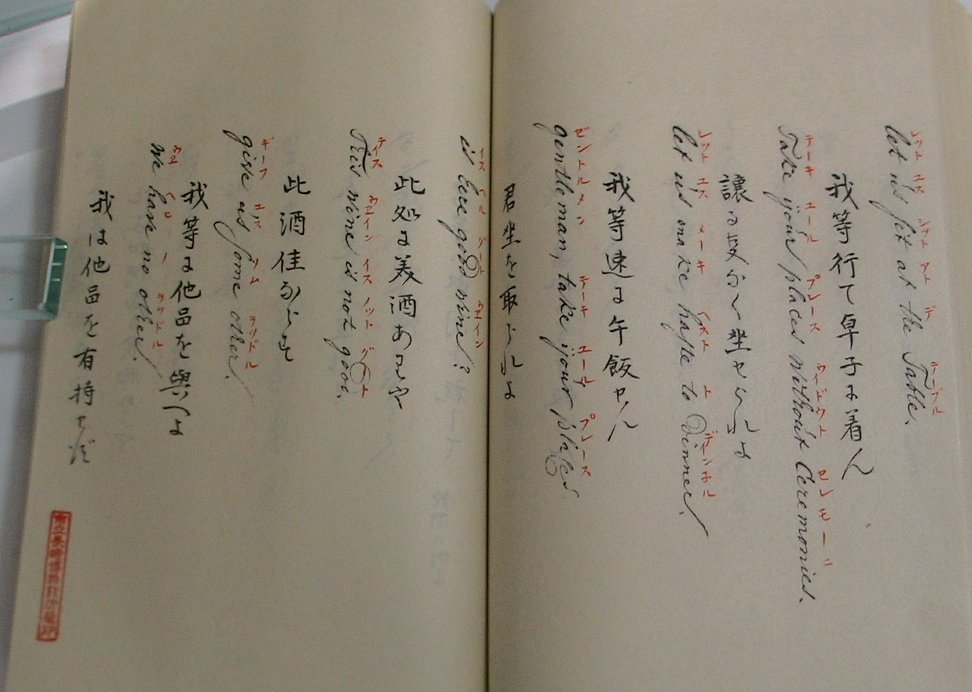 let us sit at the Table.
レット ユス シット アト デ テーブル
我等行て卓子に着ん
Take your places without Ceremonies.
テーキ ユール プレース ウイドウト セレモーニ
譲る事なく坐せられよ
let us make haste to Dinner.
レット ユス メーキ ヘースト ト ディンネル
我等速に午飯せん
gentleman, take your places
ゼントルメン テーキ ユール プレース
君坐を取られよ
is here good wine?
イース ヘール グード ウエイン
此処に美酒ありや
This wine is not good.
ディス ウエイン イス ノット グード
此酒佳ならず
give us some other.
ギーフ ユス ソム オツドル
我等に他品を與へよ
we have no other.
ウエ ヘヒ ノ オツドル
我は他品を有持せず